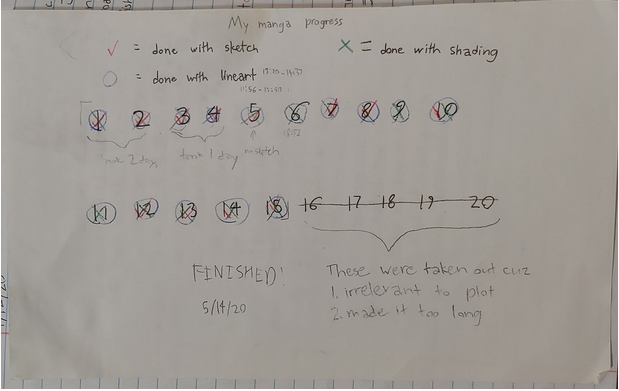 My manga progress
✓ = done with sketch
X = done with shading
○ = done with lineart
1 2 3 4 5 6 7 8 9 10
took 2 days
took 1 day
sketch
11 12 13 14 15 16 17 18 19 20
FINISHED!
5/14/20
These were taken out cuz
1. irrelevant to plot
2. made it too long